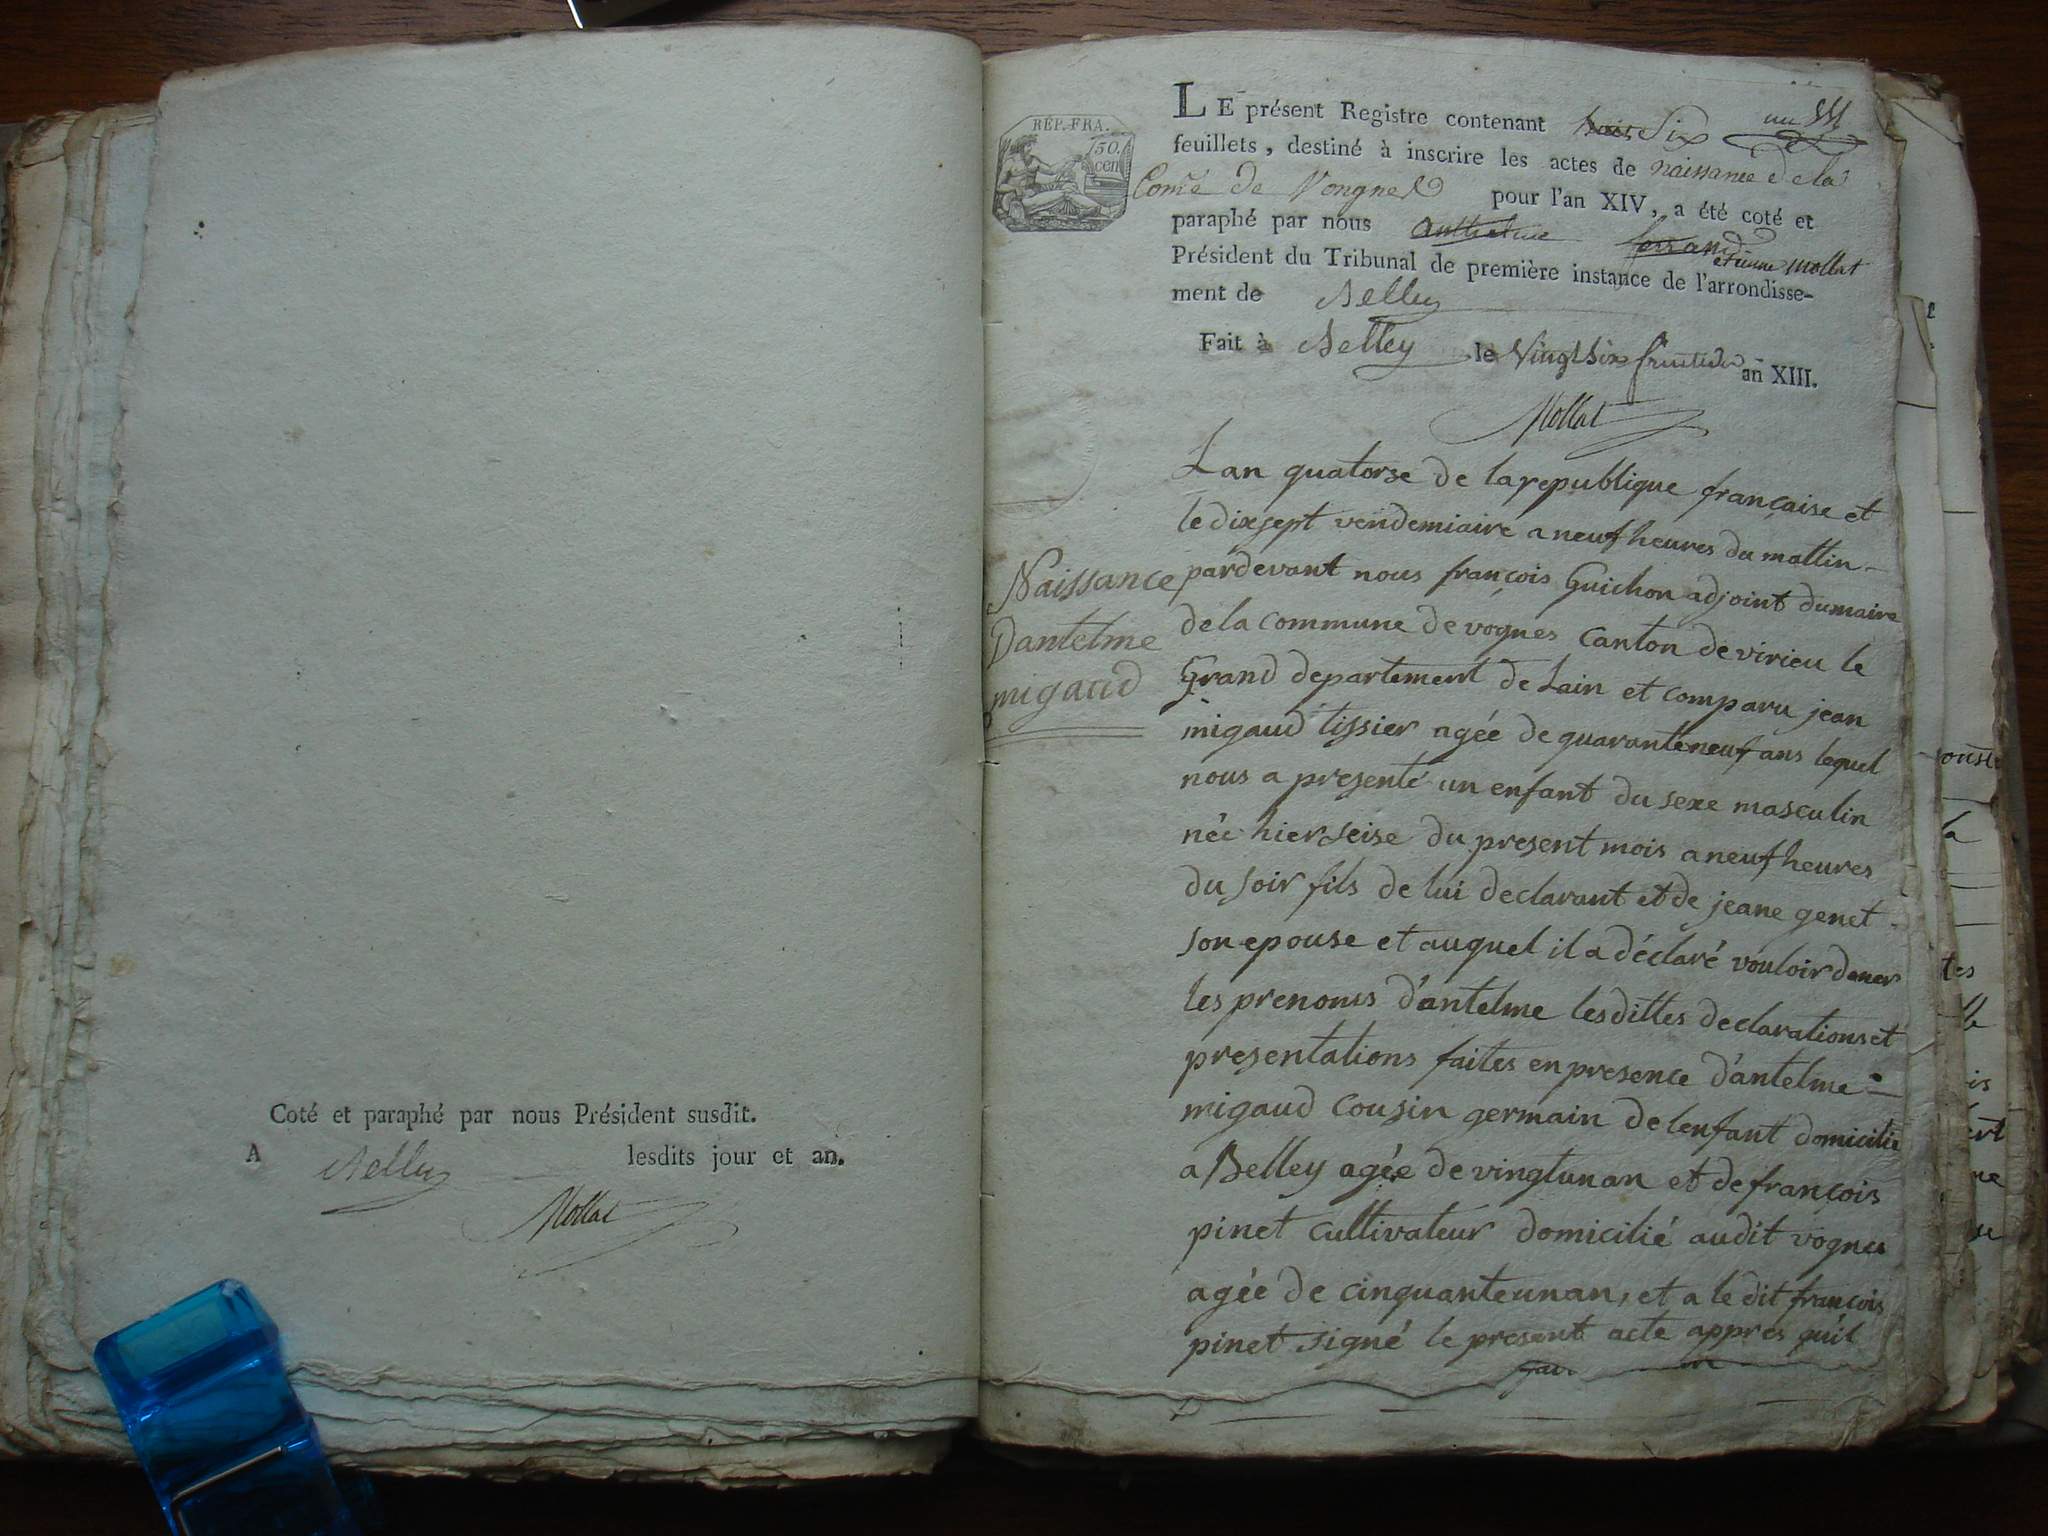 Coté et paraphé par nous Président susdit.
A Belley lesdits jour et an.
Mollat
RÉP. FRA.
50.
cen
LE présent Registre contenant six
feuillets, destiné à inscrire les actes de naissance de la
Com̃e de Vongnes pour l'an XIV, a été coté et
paraphé par nous anthelme ferrand etienne mollat
Président du Tribunal de première instance de l'arrondisse-
ment de Belley
Fait à Belley le vingt six fructidor an XIII.
Mollat
Naissance
Dantelme
migaud
Lan quatorse de la republique française et
le dixsept vendemiaire a neuf heures du mattin
pardevant nous françois Guichon adjoint du maire
de la commune de vognes canton de virieu le
Grand departement de Lain et comparu jean
migaud tissier agée de quaranteneuf ans lequel
nous a presenté un enfant du sexe masculin
née hier seise du present mois a neuf heures
du soir fils de lui declarant et de jeane genet
son epouse et auquel il a déclaré vouloir doner
les prenoms d'antelme lesdittes declarations et
presentations faites en presence d'antelme
migaud cousin germain de lenfant domicilié
a Belley agée de vingtunan et de françois
pinet cultivateur domicilié audit vognes
agée de cinquanteunan, et a le dit françois
pinet signé le present acte appres quil